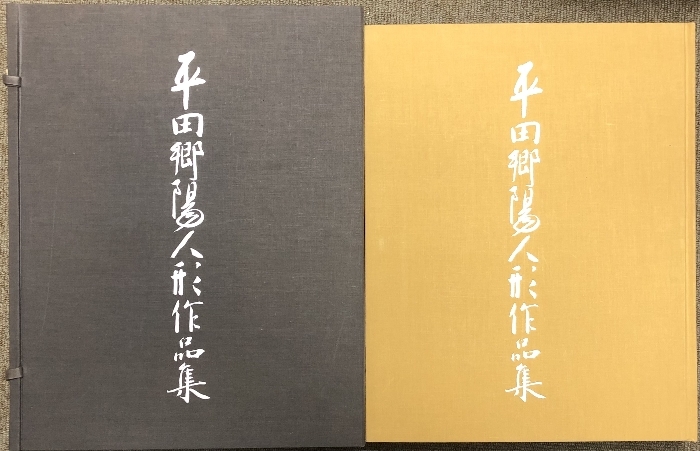 平田郷陽人形作品集
平田郷陽人形作品集